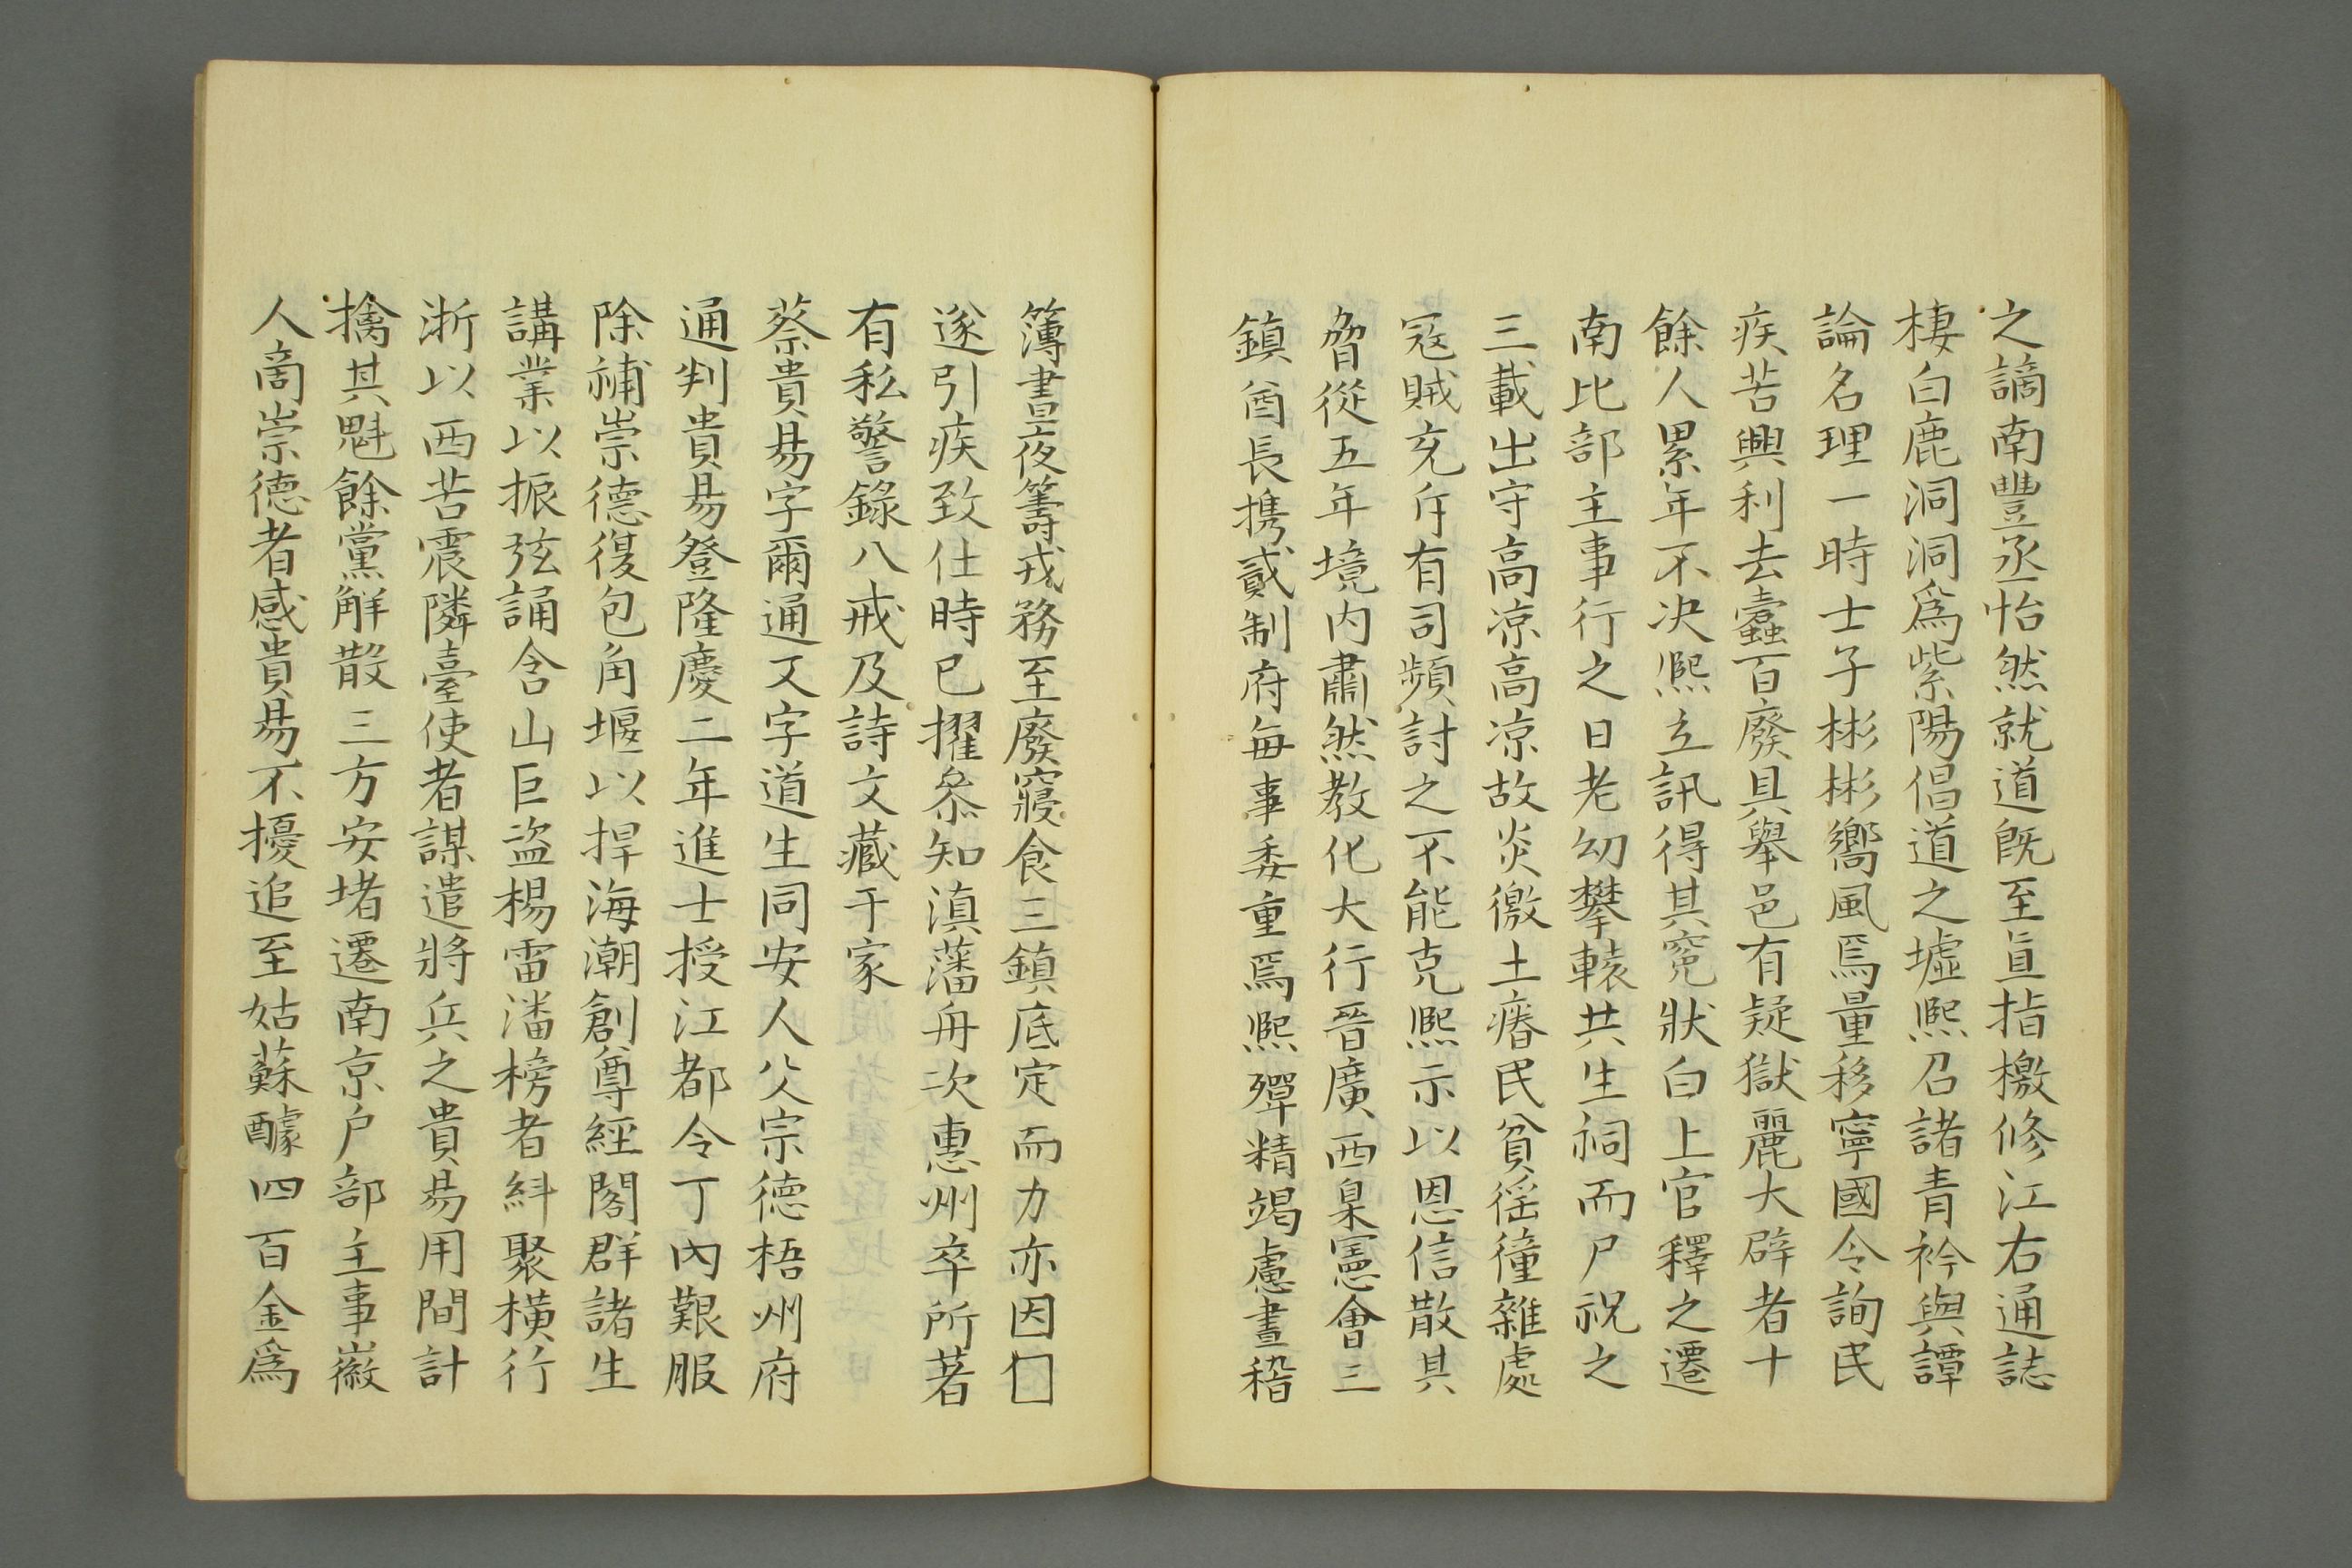 之謫南豐丞怡然就道既至直指檄修江右通誌
棲白鹿洞洞爲紫陽倡道之墟熙召諸青衿與譚
論名理一時士子彬彬嚮風焉量移寧國令詢民
疾苦興利去蠹百廢具舉邑有疑獄麗大辟者十
餘人累年不决熙立訊得其寃狀白上官釋之遷
南比部主事行之日老幼攀轅共生祠而尸祝之
三載出守高凉高凉故炎徼土瘠民貧徭獞雜處
寇賊充斥有司頻討之不能克熙示以恩信散其
脅從五年境内肅然教化大行晉廣西臬憲會三
鎮酋長携貳制府每事委重焉熙殫精竭慮晝稽
簿書夜籌戎務至廢寢食三鎮底定而力亦因□
遂引疾致仕時已擢叅知滇藩舟次惠州卒所著
有私警錄八戒及詩文藏于家
蔡貴易字爾通又字道生同安人父宗德梧州府
通判貴易登隆慶二年進士授江都令丁內艱服
除補崇德復包角堰以捍海潮創尊經閣群諸生
講業以振弦誦含山巨盜楊雷潘榜者糾聚横行
浙以西苦震隣臺使者謀遣將兵之貴易用間計
擒其魁餘黨解散三方安堵遷南京户部主事徽
人商崇德者感貴易不擾追至姑蘇醵四百金爲